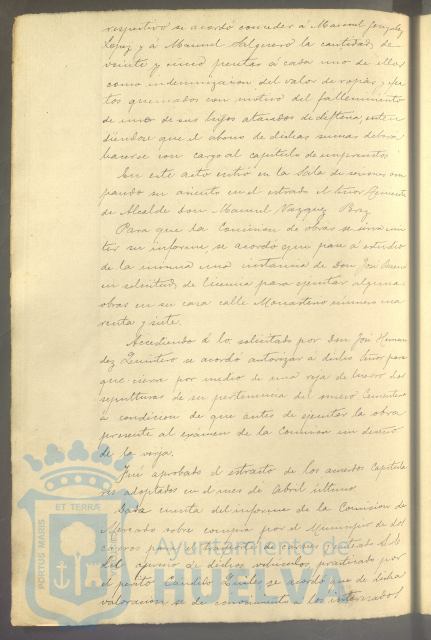 respectivo se acordó conceder á Manuel Gonzalez
Lopez y á Manuel Salguero la cantidad de
veinte y cinco pesetas á cada uno de ellos
como indemnizacion del valor de ropas y efec
tos quemados con motivo del fallecimiento
de uno de sus hijos atacados de difteria, enten
diendose que el abono de dichas sumas deberá
hacerse con cargo al capitulo de imprevistos.
En este acto entró en la Sala de sesiones ocu
pando su asiento en el estrado el Señor Teniente
de Alcalde don Manuel Vazquez
Para que la Comision de obras se sirva emi
tir su informe, se acordó que pase á estudio
de la misma una instancia de Don José
en solicitud de licencia para ejecutar algunas
obras en su casa calle Monasterio número cua
renta y siete.
Accediendo á lo solicitado por Don José Hernan
dez Quintero se acordó autorizar á dicho Señor para
que cierre por medio de una reja de hierro dos
sepulturas de su pertenencia del nuevo Cementerio
á condicion de que antes de ejecutar la obra
presente al exámen de la Comision un diseño
de la verja.
Fué aprobado el extracto de los acuerdos Capitula
res adoptados en el mes de Abril último.
Dada cuenta del informe de la Comision de
Mercado sobre compra por el Municipio de dos
carros para el trasporte de carnes y
del aprecio de dichos vehiculos practicado por
el perito Candido Quiles se acordó que de dicha
valoracion se dé conocimiento á los interesados
PORTUS MARIS
ET TERRÆ
CUSTODIA
Ayuntamiento de
HUELVA